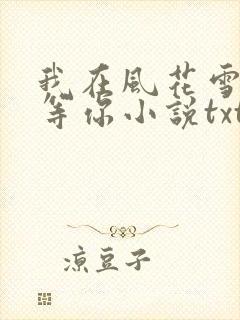 我在風花雪
等你小說txt
涼豆子